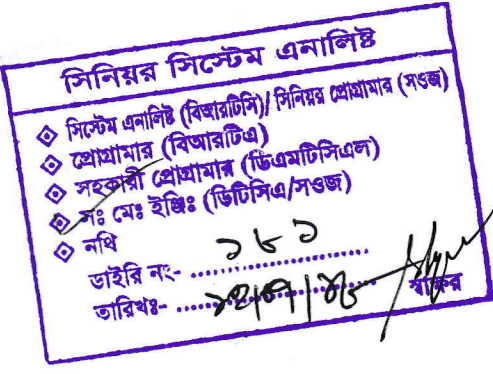 সিনিয়র সিস্টেম এনালিষ্ট
সিস্টেম এনালিষ্ট (বিআরটিসি)/ সিনিয়র প্রোগ্রামার (সওজ)
প্রোগ্রামার (বিআরটিএ)
সহকারী প্রোগ্রামার (ডিএমটিসিএল)
সঃ মেঃ ইঞ্জিঃ (ডিটিসিএ/সওজ)
নথি
ডাইরি নং- ১৮১
তারিখঃ-
স্বাক্ষর